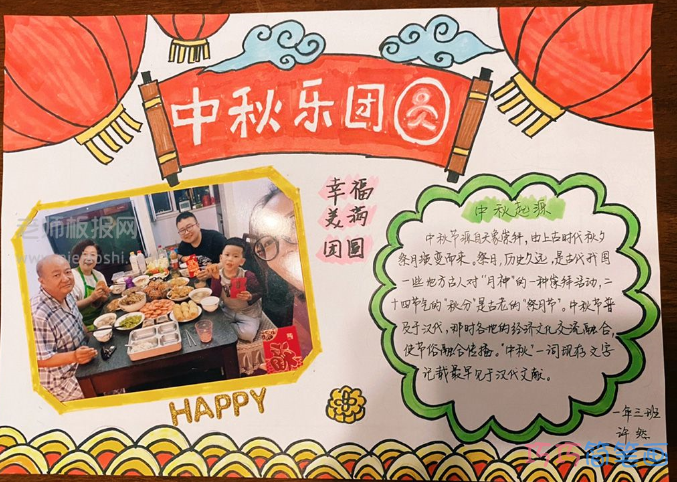 中秋乐团圆
老师板报网
幸福
美满
团圆
HAPPY
中秋起源
中秋节源自天象崇拜,由上古时代秋夕
祭月演变而来。祭月,历史久远,是古代我国
一些地方古人对“月神”的一种崇拜活动,二
十四节气的“秋分”是古老的“祭月节”。中秋节普
及于汉代,那时各地的经济文化交流融合,
使节俗融合传播。“中秋”一词现存文字
记载最早见于汉代文献。
一年三班
许然
简笔画